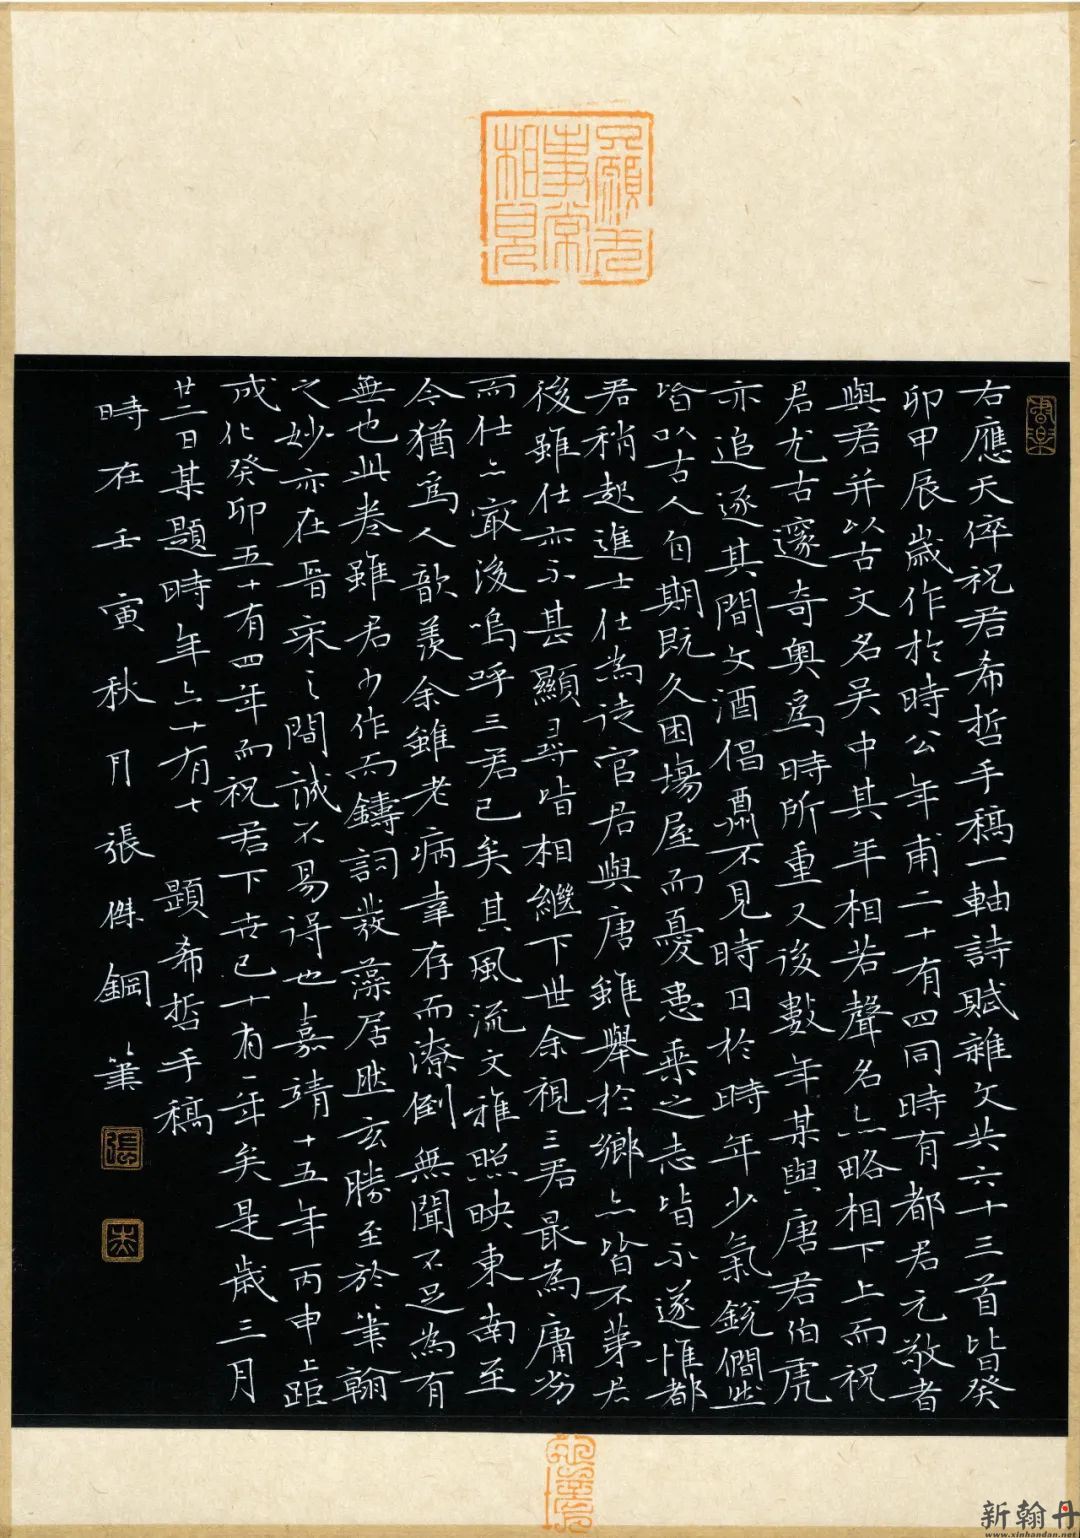 右應天倅祝君希哲手稿一軸詩賦雜文共六十三首皆癸
卯甲辰歲作於時公年甫二十有四同時有都君元敬者
與君并以古文名吳中其年相若聲名亦略相下上而祝
君尤古邃奇奧爲時所重又後數年某與唐君伯虎
亦追逐其間文酒倡酬不見時日於時年少氣銳僴然
皆以古人自期既久困場屋而憂患乘之志皆不遂惟都
君稍起進士仕為徒官君與唐雖舉於鄉亦皆不第君
後雖仕亦不甚顯尋皆相繼下世余視三君最為庸劣
而仕亦㝡後嗚呼三君已矣其風流文雅照映東南至
今猶爲人歆羨余雖老病幸存而潦倒無聞不足為有
無也此卷雖君少作而鑄詞發藻居然玄勝至於筆翰
之妙亦在晉宋之間誠不易得也嘉靖十五年丙申上距
成化癸卯五十有四年而祝君下世已十有一年矣是歲三月
廿二日某題時年六十有七 題希哲手稿
時在壬寅秋月張傑鋼筆
張
新翰丹
www.xinhandan.net